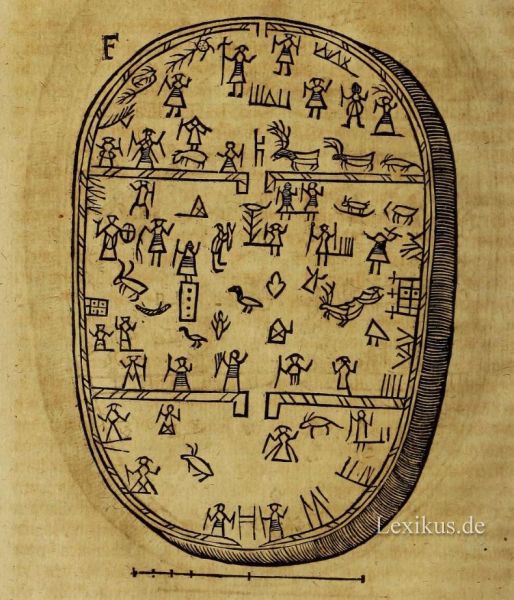 F
Lexikus.de